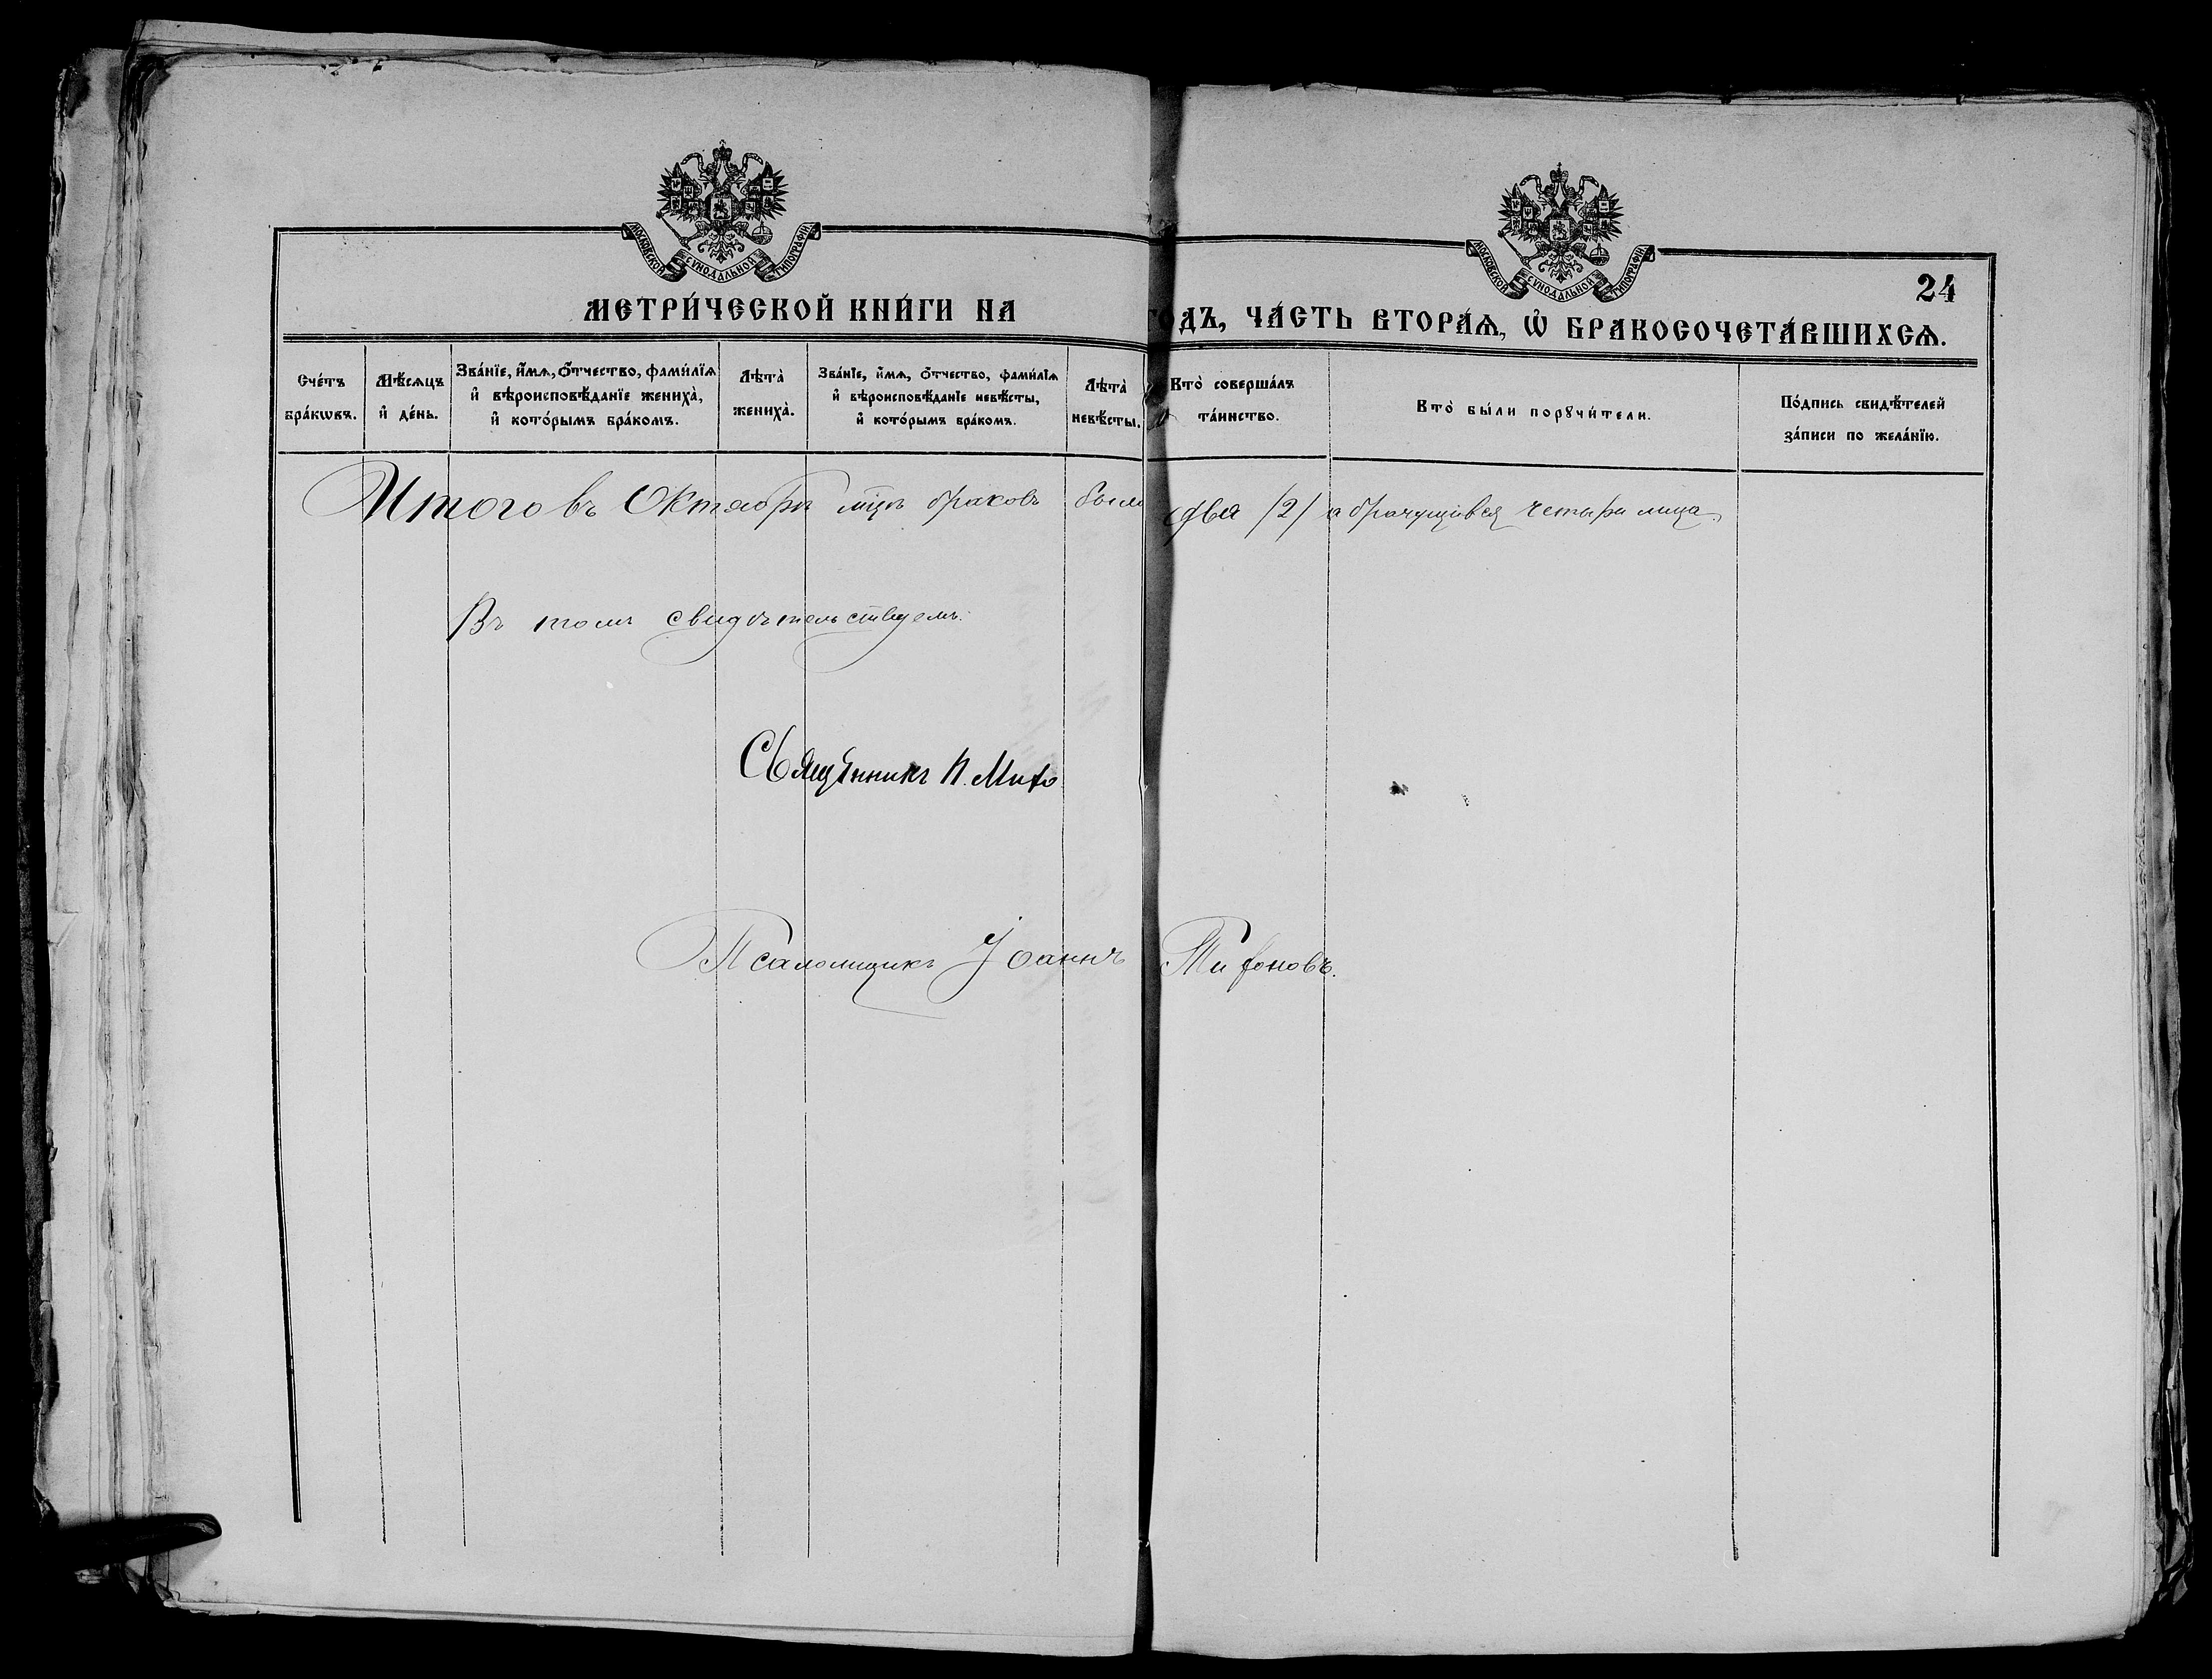 МОСКОВСКОЙ СѴНОДАЛЬНОЙ ТИПОГРАФІИ
МОСКОВСКОЙ СѴНОДАЛЬНОЙ ТИПОГРАФІИ
24
МЕТРИ́ЧЕСКОЙ КНИ́ГИ НА ГОДЪ, ЧА́СТЬ ВТОРА́Ѧ, Ѡ҆ БРАКОСОЧЕТА́ВШИХСѦ.
Сче́тъ
бра́кѡвъ.
Мѣ́сѧцъ
и҆ де́нь.
Зва́нїе, и҆́мѧ, ѻ҆́тчество, фами́лїѧ
и҆ вѣроисповѣ́данїе жениха̀,
и҆ кото́рымъ бра́комъ.
Лѣта̀
жениха̀.
Зва́нїе, и҆́мѧ, ѻ҆́тчество, фами́лїѧ
и҆ вѣроисповѣ́данїе невѣ́сты,
и҆ кото́рымъ бра́комъ.
Лѣта̀
невѣ́сты.
Кто̀ соверша́лъ
та́инство.
Кто̀ бы́ли порꙋчи́тели.
По́дпись свидѣ́телей
за́писи по жела́нїю.
Итого въ Октябрѣ мцѣ браковъ было два /2/ а брачущихся четыре лица.
Въ томъ свидѣтельствуемъ:
Священникъ
Псаломщикъ Іоаннъ